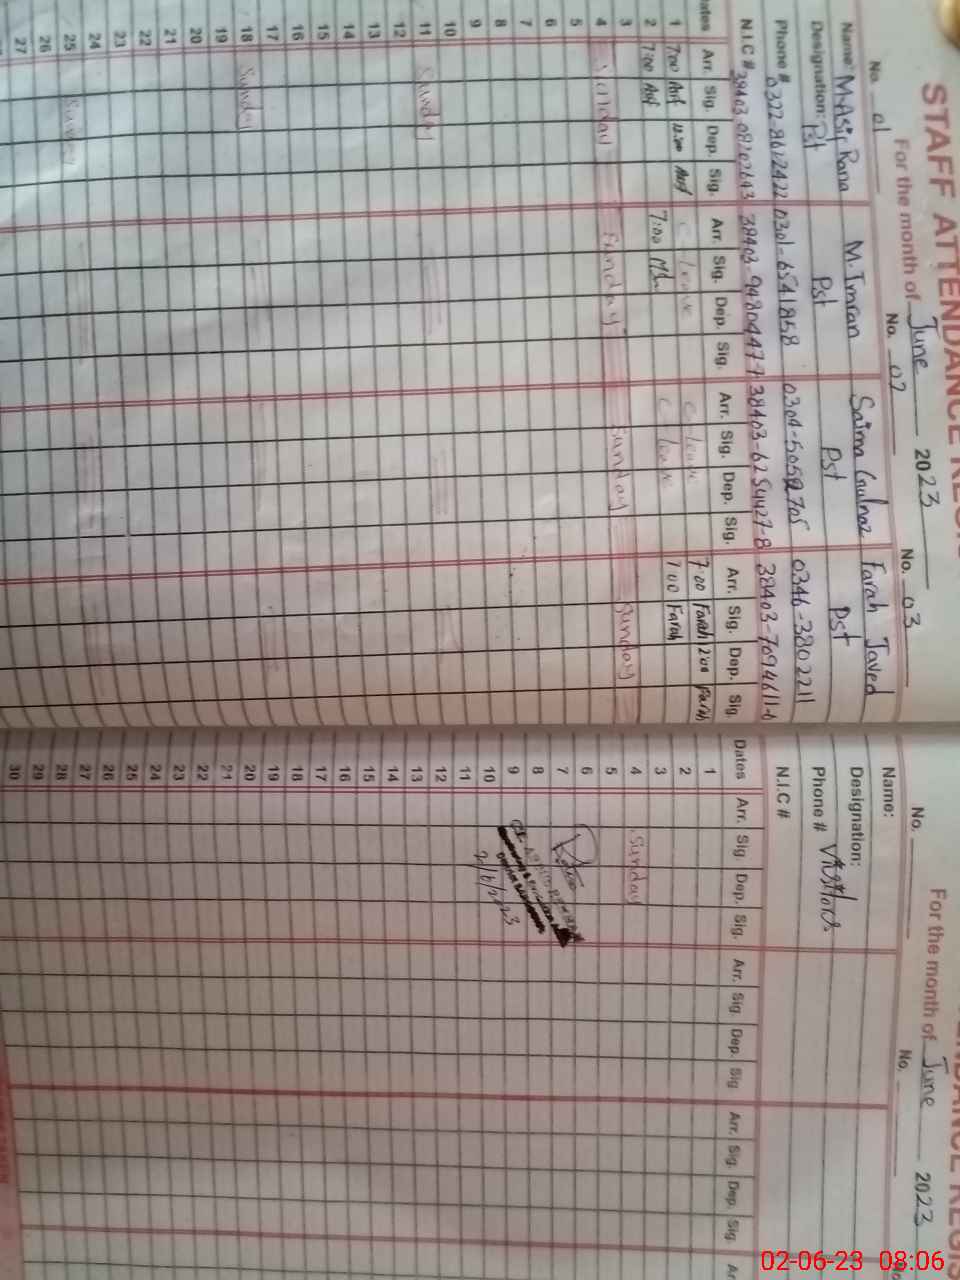 STAFF ATTENDANCE REGIS
For the month of June 2023
No. 01 No. 02 No. 03
Name: M.Asif Rana M. Imran Saima Gulnaz Farah Javed
Designation: Pst Pst Pst Pst
Phone # 0322-8612422 0301-6541858 0304-5052705 0346-3802211
N.I.C # 38403 08202643 38403-94804477 38403-6254427-8 38403-7094611-6
Dates Arr. Sig. Dep. Sig. Arr. Sig. Dep. Sig. Arr. Sig. Dep. Sig. Arr. Sig. Dep. Sig.
1 7:00 Asif 12:00 Asif C-leave C-leave 7:00 Farah 2:00 Farah
2 7:00 Asif 7:00 C-leave 7:00 Farah
3
4 Sunday Sunday Sunday Sunday
5
6
7
8
9
10
11 Sunday
12
13
14
15
16
17
18 Sunday
19
20
21
22
23
24
25 Sunday
26
27
ENDANCE REGIS
For the month of June 2023
No. No.
Name:
Designation:
Phone # Visitors
N.I.C #
Dates Arr. Sig. Dep. Sig. Arr. Sig. Dep. Sig Arr. Sig. Dep. Sig. Ar
1
2
3
4 Sunday
5
6
7
8
9
10 2/6/2023
11
12
13
14
15
16
17
18
19
20
21
22
23
24
25
26
27
28
29
30
02-06-23 08:06